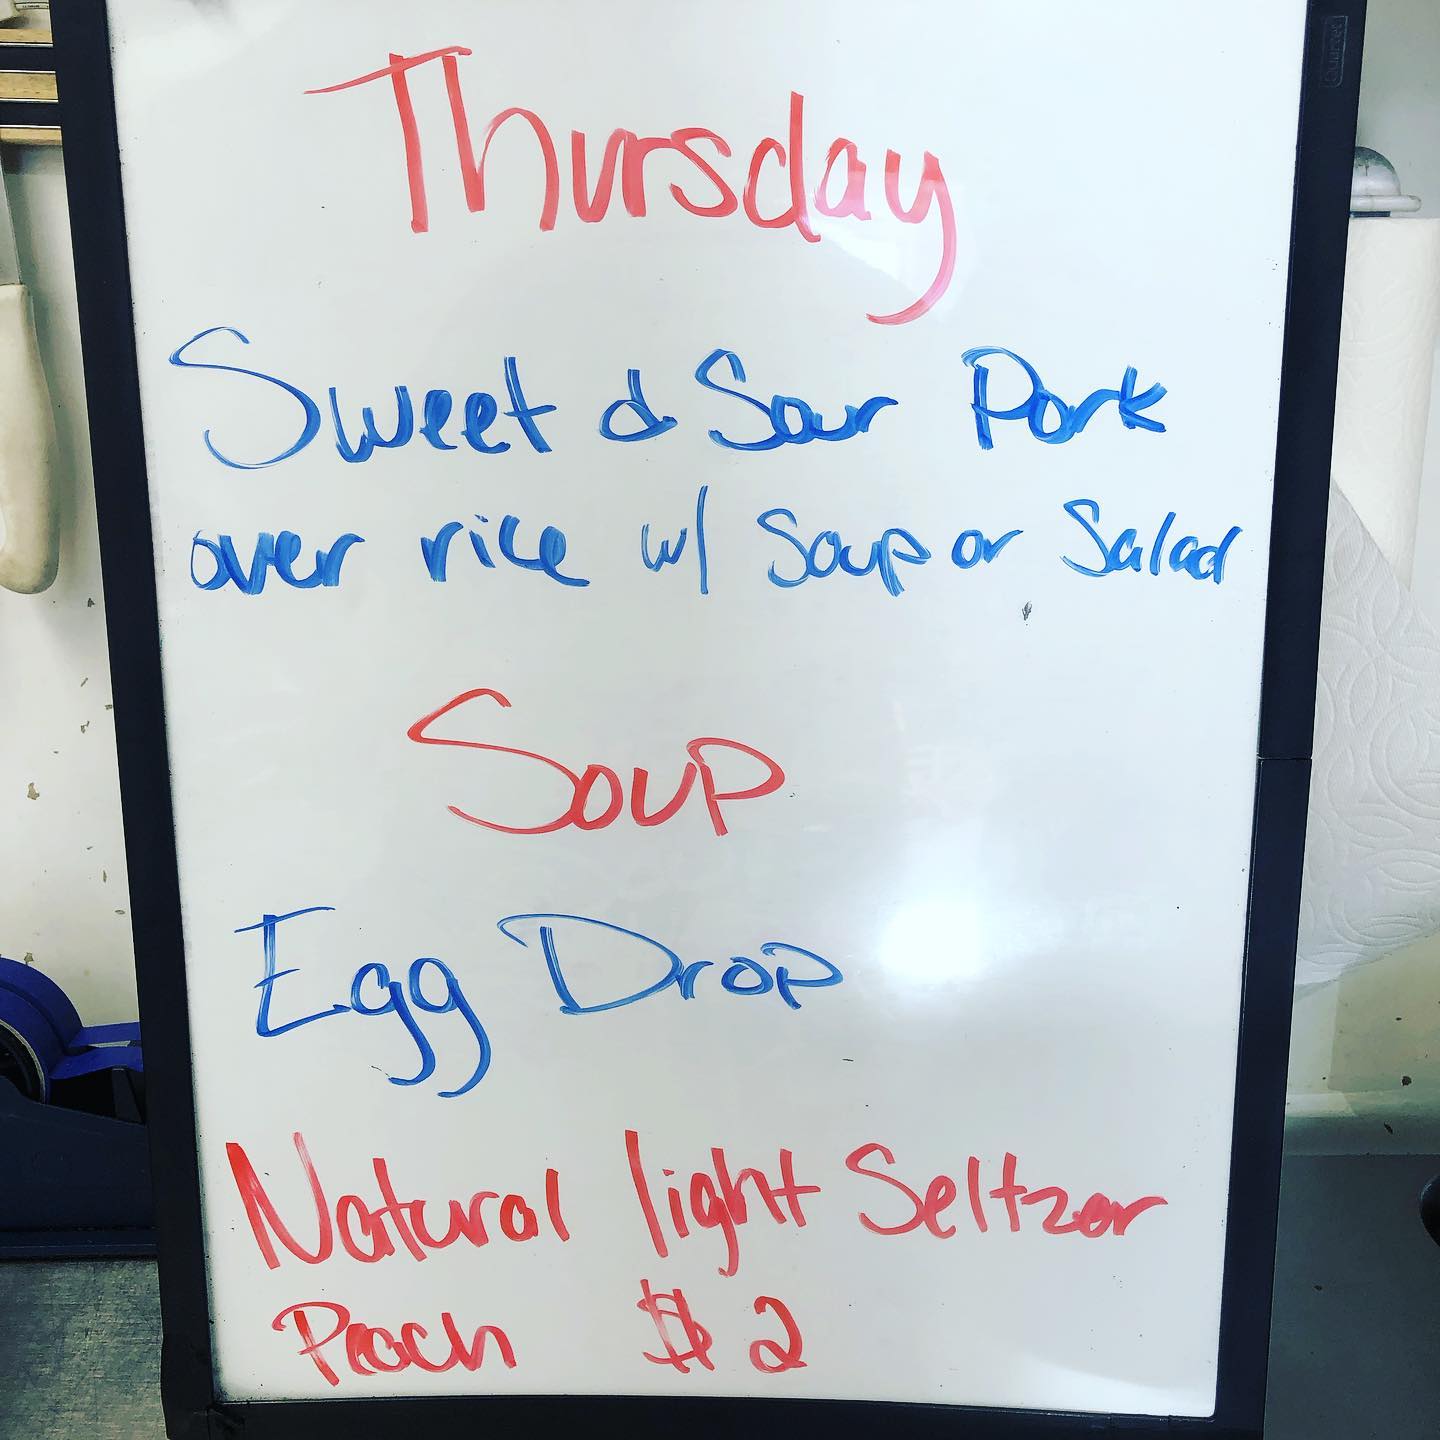 Quartet
Thursday
Sweet & Sour Pork
over rice w/ Soup or Salad
Soup
Egg Drop
Natural light Seltzer
Peach $2